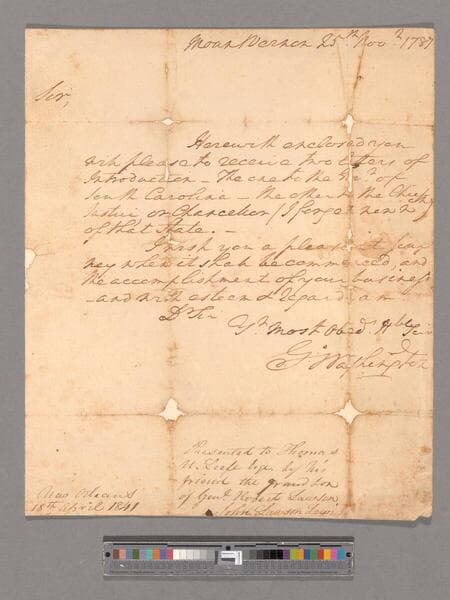 Mount Vernon 25th Novr 1787
Sir,
Herewith enclosed you
will please to receive two letters of
Introduction — The one to the Govr of
South Carolina — the other to the Chief
Justice or Chancellor (I forget which)
of that State. —
I wish you a pleasant jour
ney when it shall be commenced and
the accomplishment of your business
— and with esteem & regard I am
Dr Sir
Yr Most Obedt Hble Ser
Go Washington
Presented to Thomas
Esqr by his
friend the grandson
of Genl Robert Lawson
John Lawson
New Orleans
18th April 1841